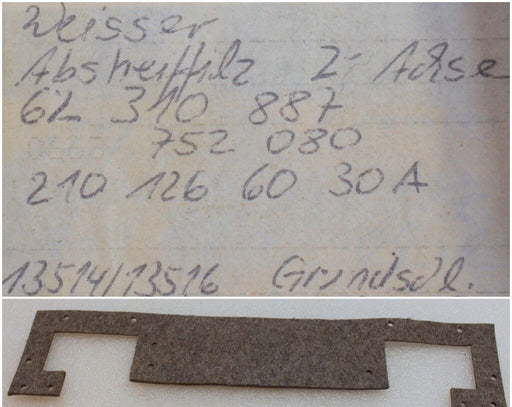 Weisser
Abstreiffilz Z-Achse
6L 310 887
752 080
210 126 60 30A
13514/13516 Grundschl.